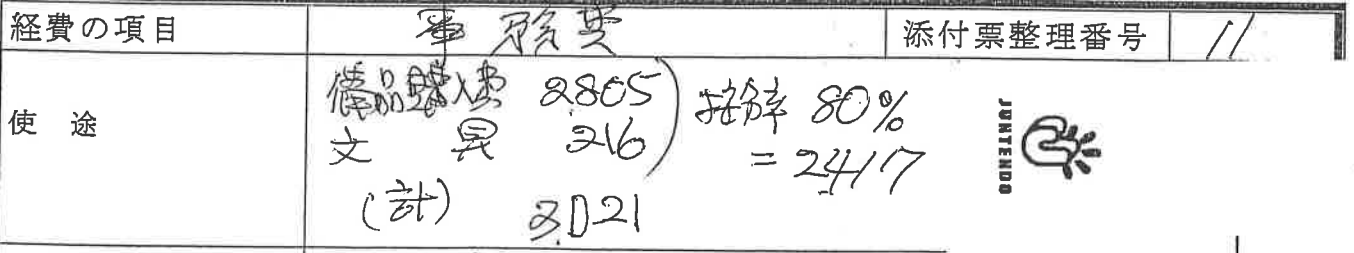 経費の項目 事務費 添付票整理番号 11
使途 備品購入費 2805 按分率 80%
文具 216 =2417
(計) 3,021
JUNTENDO